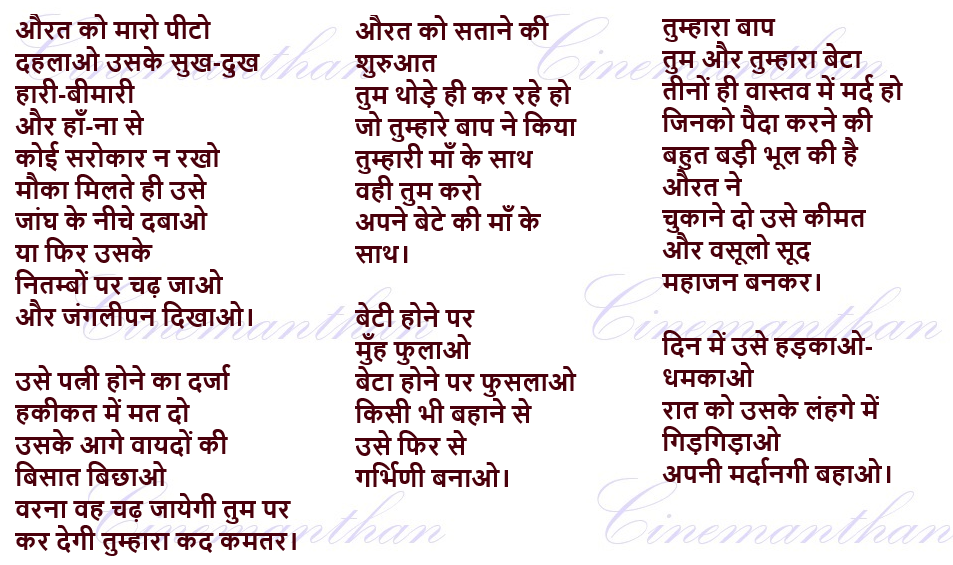 औरत को मारो पीटो
दहलाओ उसके सुख-दुख
हारी-बीमारी
और हाँ-ना से
कोई सरोकार न रखो
मौका मिलते ही उसे
जांघ के नीचे दबाओ
या फिर उसके
नितम्बों पर चढ़ जाओ
और जंगलीपन दिखाओ।
उसे पत्नी होने का दर्जा
हकीकत में मत दो
उसके आगे वायदों की
बिसात बिछाओ
वरना वह चढ़ जायेगी तुम पर
कर देगी तुम्हारा कद कमतर।
औरत को सताने की
शुरुआत
तुम थोड़े ही कर रहे हो
जो तुम्हारे बाप ने किया
तुम्हारी माँ के साथ
वही तुम करो
अपने बेटे की माँ के
साथ।
बेटी होने पर
मुँह फुलाओ
बेटा होने पर फुसलाओ
किसी भी बहाने से
उसे फिर से
गर्भिणी बनाओ।
तुम्हारा बाप
तुम और तुम्हारा बेटा
तीनों ही वास्तव में मर्द हो
जिनको पैदा करने की
बहुत बड़ी भूल की है
औरत ने
चुकाने दो उसे कीमत
और वसूलो सूद
महाजन बनकर।
दिन में उसे हड़काओ-
धमकाओ
रात को उसके लंहगे में
गिड़गिड़ाओ
अपनी मर्दानगी बहाओ।
Cinemanthan
Cinemanthan
Cinemanthan
Cinemanthan
Cinemanthan
Cinemanthan